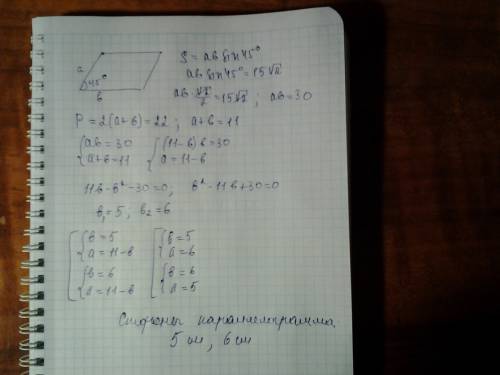 a
45°
в
S = ab sin 45°
ab sin 45° = 15√2
ab · √2/2 = 15√2 ; ab = 30
P = 2(a+b) = 22 ; a+b = 11
{ab = 30 {(11-b)b = 30
{a+b = 11 {a = 11-b
11b - b² - 30 = 0, b² - 11b + 30 = 0
b₁ = 5 ; b₂ = 6
[{b = 5 [{b = 5
{a = 11-b {a = 6
{b = 6 {b = 6
{a = 11-b {a = 5
Стороны параллелограмма
5 см, 6 см